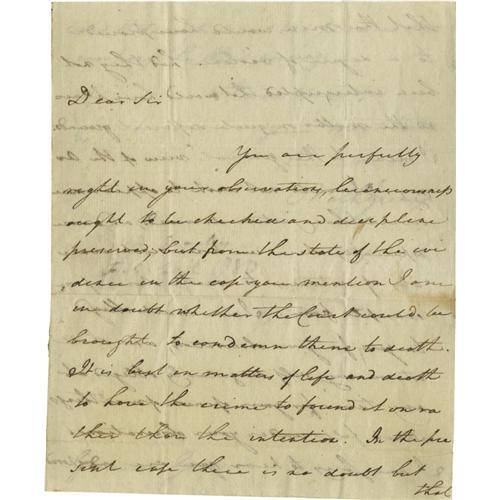 Dear Sir
You are perfectly
right in your observation, licenciousness
ought to be checked and discipline
preserved, but from the state of the evi
dence in the case you mention I am
in doubt whether the Court could be
brought to condemn them to death.
It is best in matters of life and death
to have the crime to found it on ra
ther than the intention. In the pre
sent case there is no doubt but
that